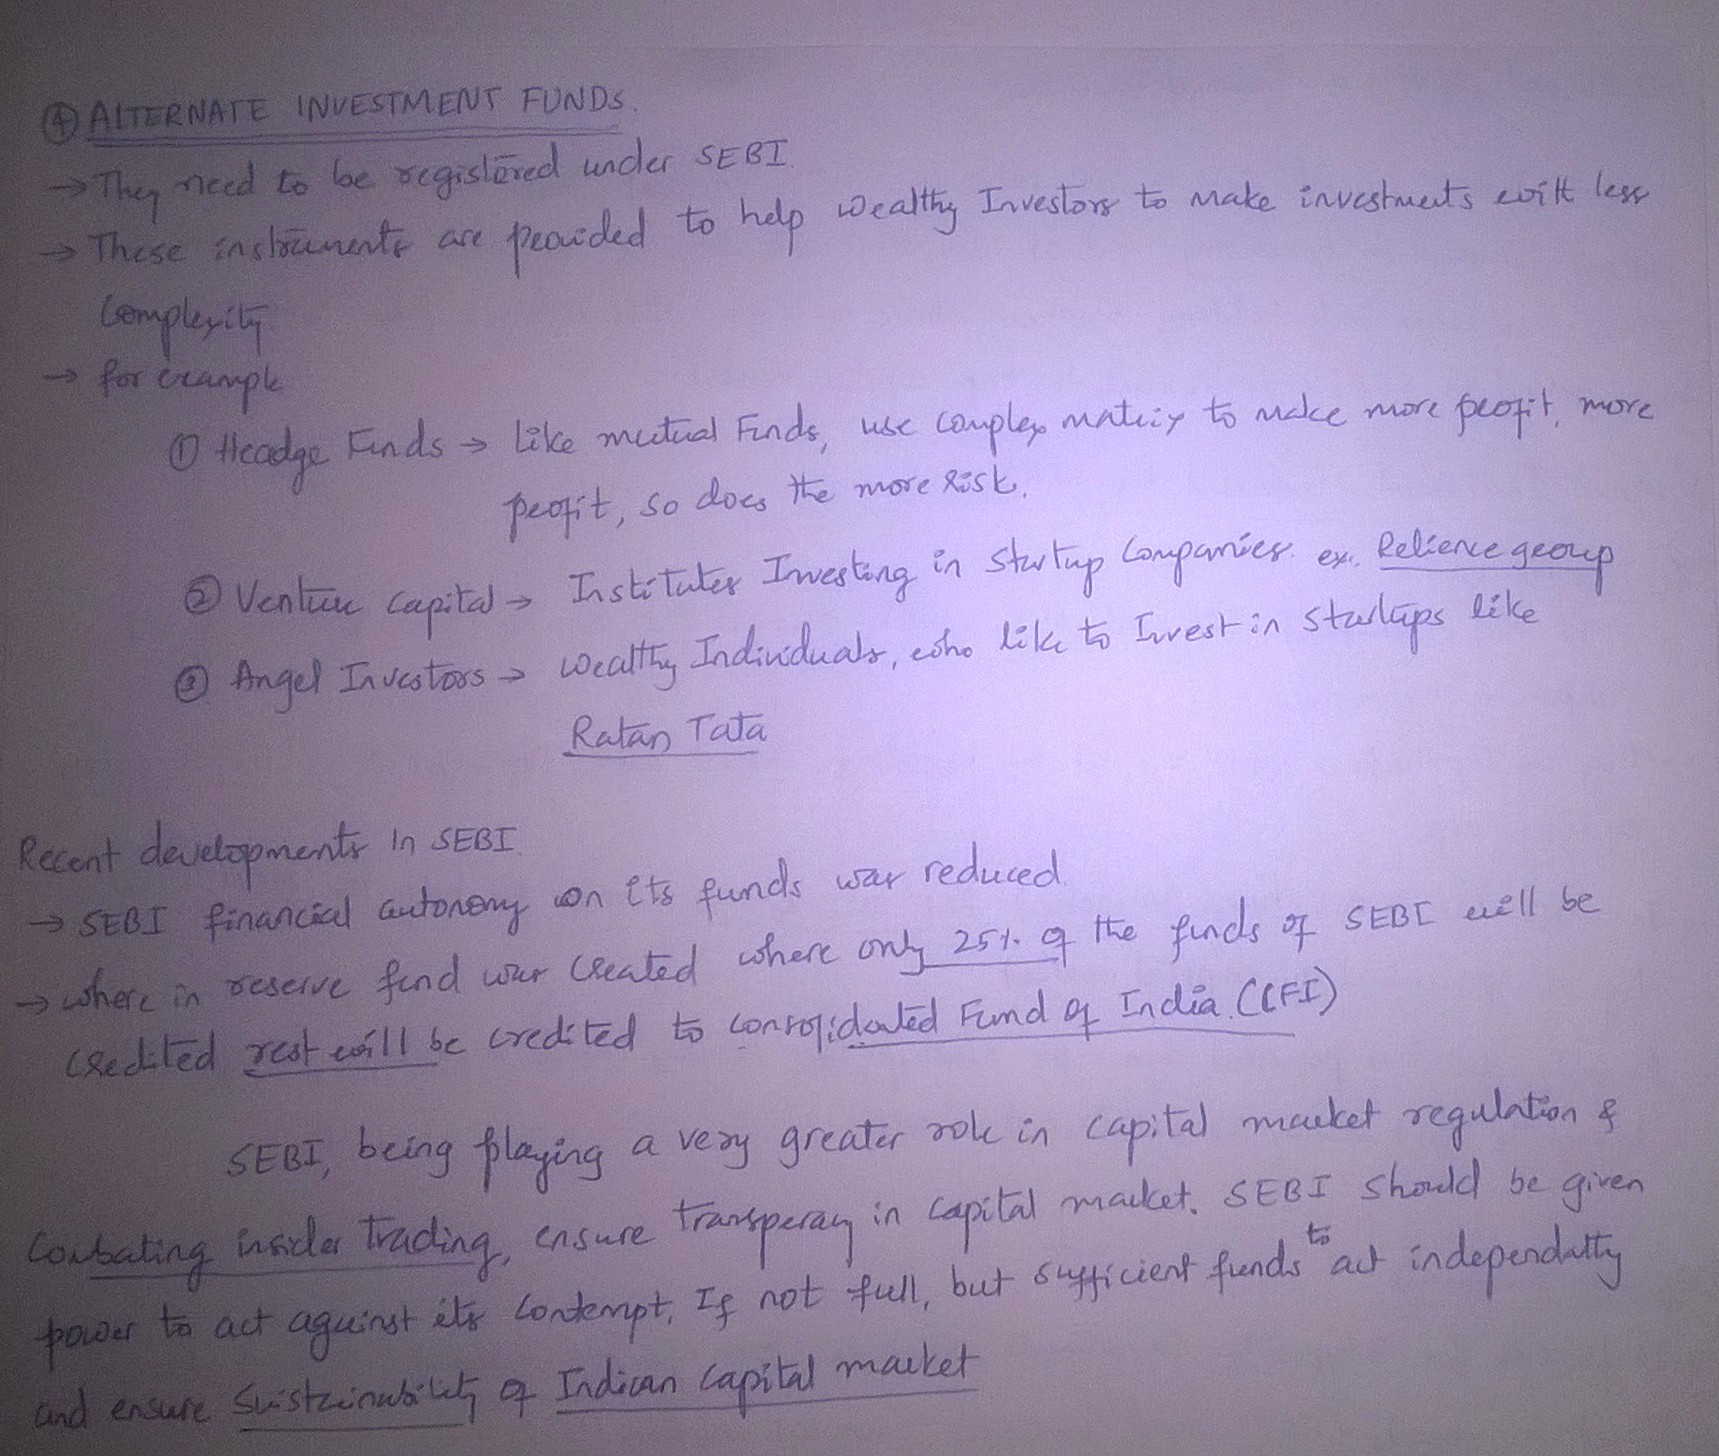 ④ ALTERNATE INVESTMENT FUNDS.
→ They need to be registered under SEBI.
→ These instruments are provided to help wealthy Investors to make investments with less
Complexity
→ for example
① Headge Funds → Like mutual Funds, use complex matrix to make more profit, more
profit, so does the more Risk.
② Venture capital → Institutes Investing in Startup Companies. ex. Relience group
③ Angel Investors → wealthy Individuals, who like to Invest in startups like
Ratan Tata
Recent developments in SEBI
→ SEBI financial autonomy on its funds was reduced.
→ where in reserve fund was created where only 25% of the funds of SEBI will be
credited rest will be credited to consolidated Fund of India. (CFI)
SEBI, being playing a very greater role in capital market regulation &
Combating insider trading, ensure transperacy in capital market. SEBI should be given
power to act against its contempt. If not full, but sufficient funds to act independatty
and ensure sustainability of Indian capital market